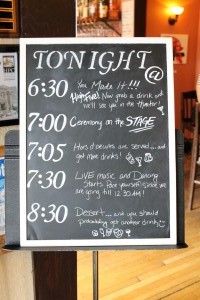 TONIGHT
@
6:30 You Made It!!!
High Five! Now grab a drink and
we'll see you in the theater!
7:00 Ceremony on the STAGE
7:05 Hors d'oeuvres are served ... and
get more drinks!
7:30 LIVE music and Dancing
Starts. Pace yourself since we
are going till 12:30 AM!
8:30 Dessert ... and you should
probably get another drink